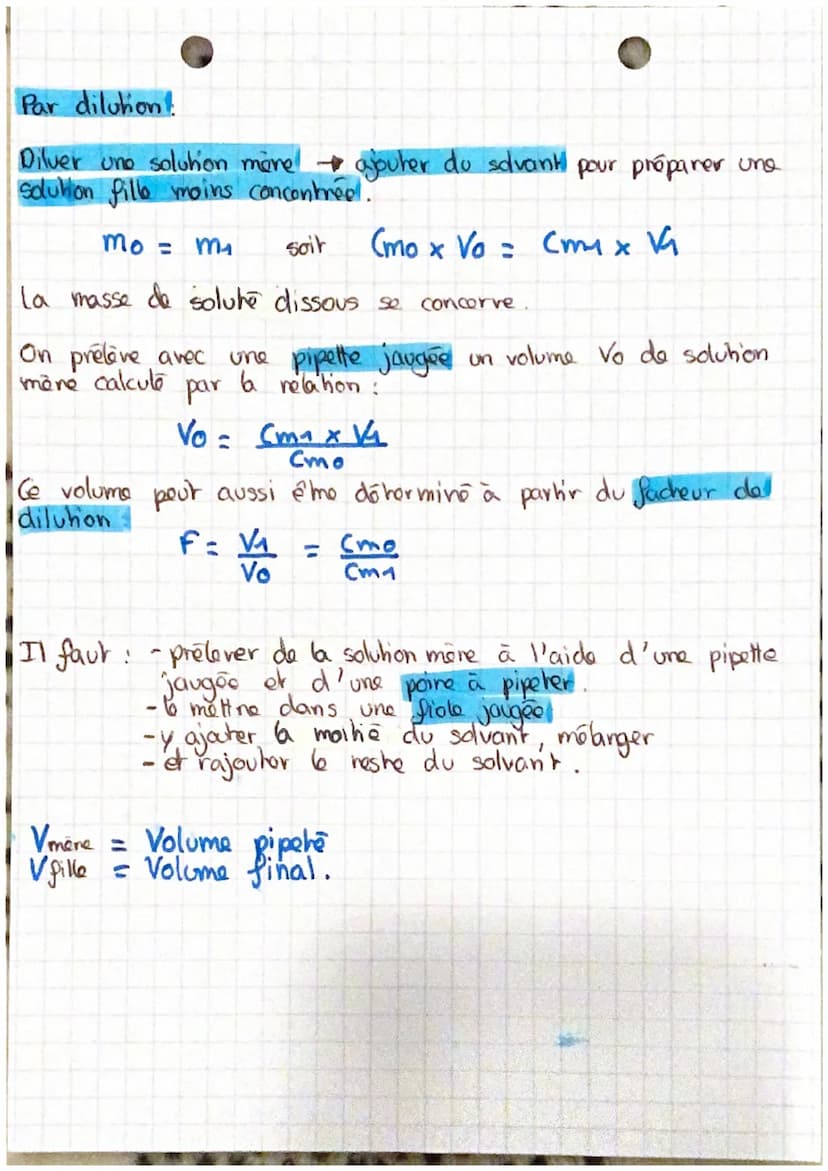 Par dilution :
Diluer une solution mère → ajouter du solvant pour préparer une
solution fille moins concentrée.
m0 = m1 soit Cm0 x V0 = Cm1 x V1
La masse de soluté dissous se concerve.
On prélève avec une pipette jaugée un volume V0 de solution
mère calculé par la relation :
V0 = Cm1 x V1
Cm0
Ce volume peut aussi être déterminé à partir du facteur de
dilution :
F = V1 = Cm0
V0 Cm1
Il faut : - prélever de la solution mère à l'aide d'une pipette
jaugée et d'une poire à pipeter.
- le mettre dans une fiole jaugée
- y ajouter la moitié du solvant, mélanger
- et rajouter le reste du solvant.
Vmère = Volume pipeté
Vfille = Volume final.